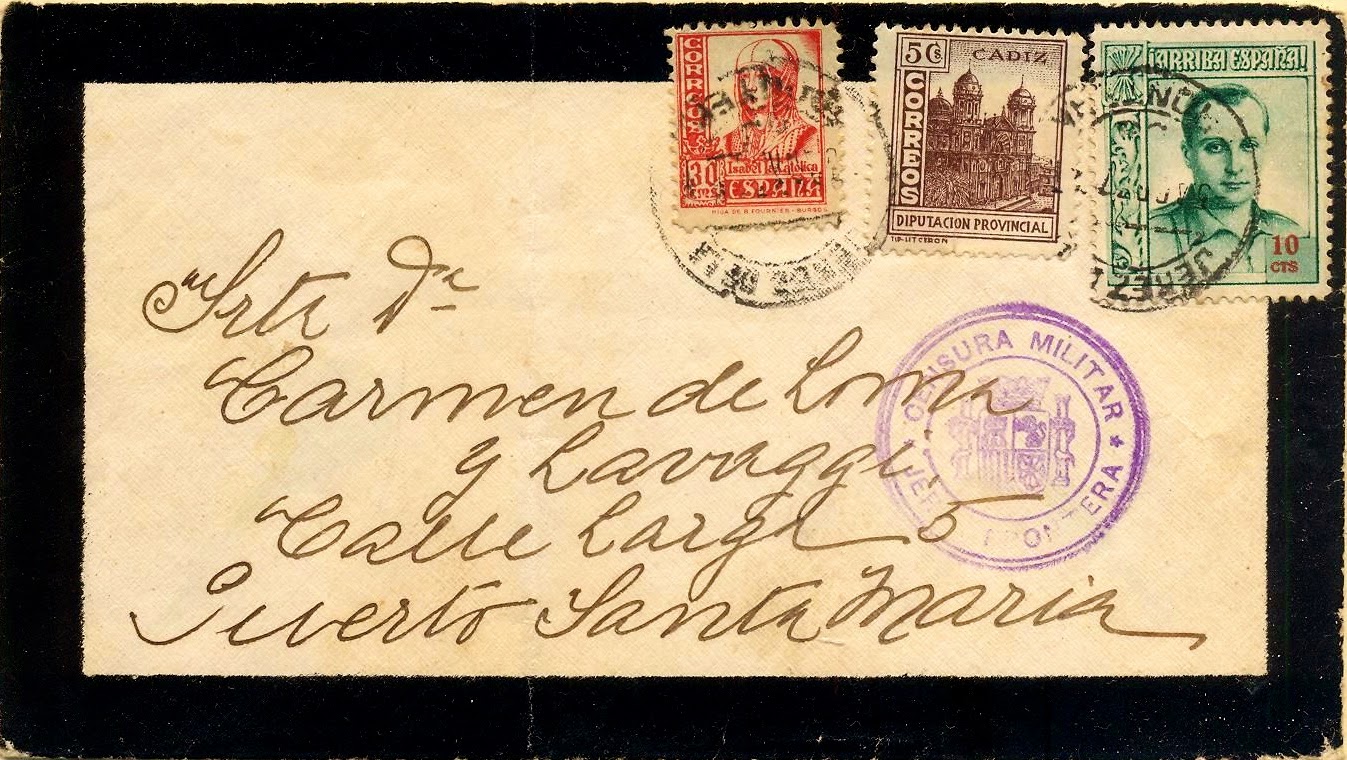 CORREOS
30 CTS
Isabel la Católica
ESPAÑA
HIJA DE B. FOURNIER - BURGOS
5Cs CADIZ
CORREOS
DIPUTACION PROVINCIAL
TIP-LIT CERON
¡ARRIBA ESPAÑA!
10
CTS
JEREZ DE LA
JEREZ
CENSURA MILITAR
JEREZ FRONTERA
Srta Dª
Carmen de Loma
y Lavaggi
Calle Larga 5
Puerto Santa Maria